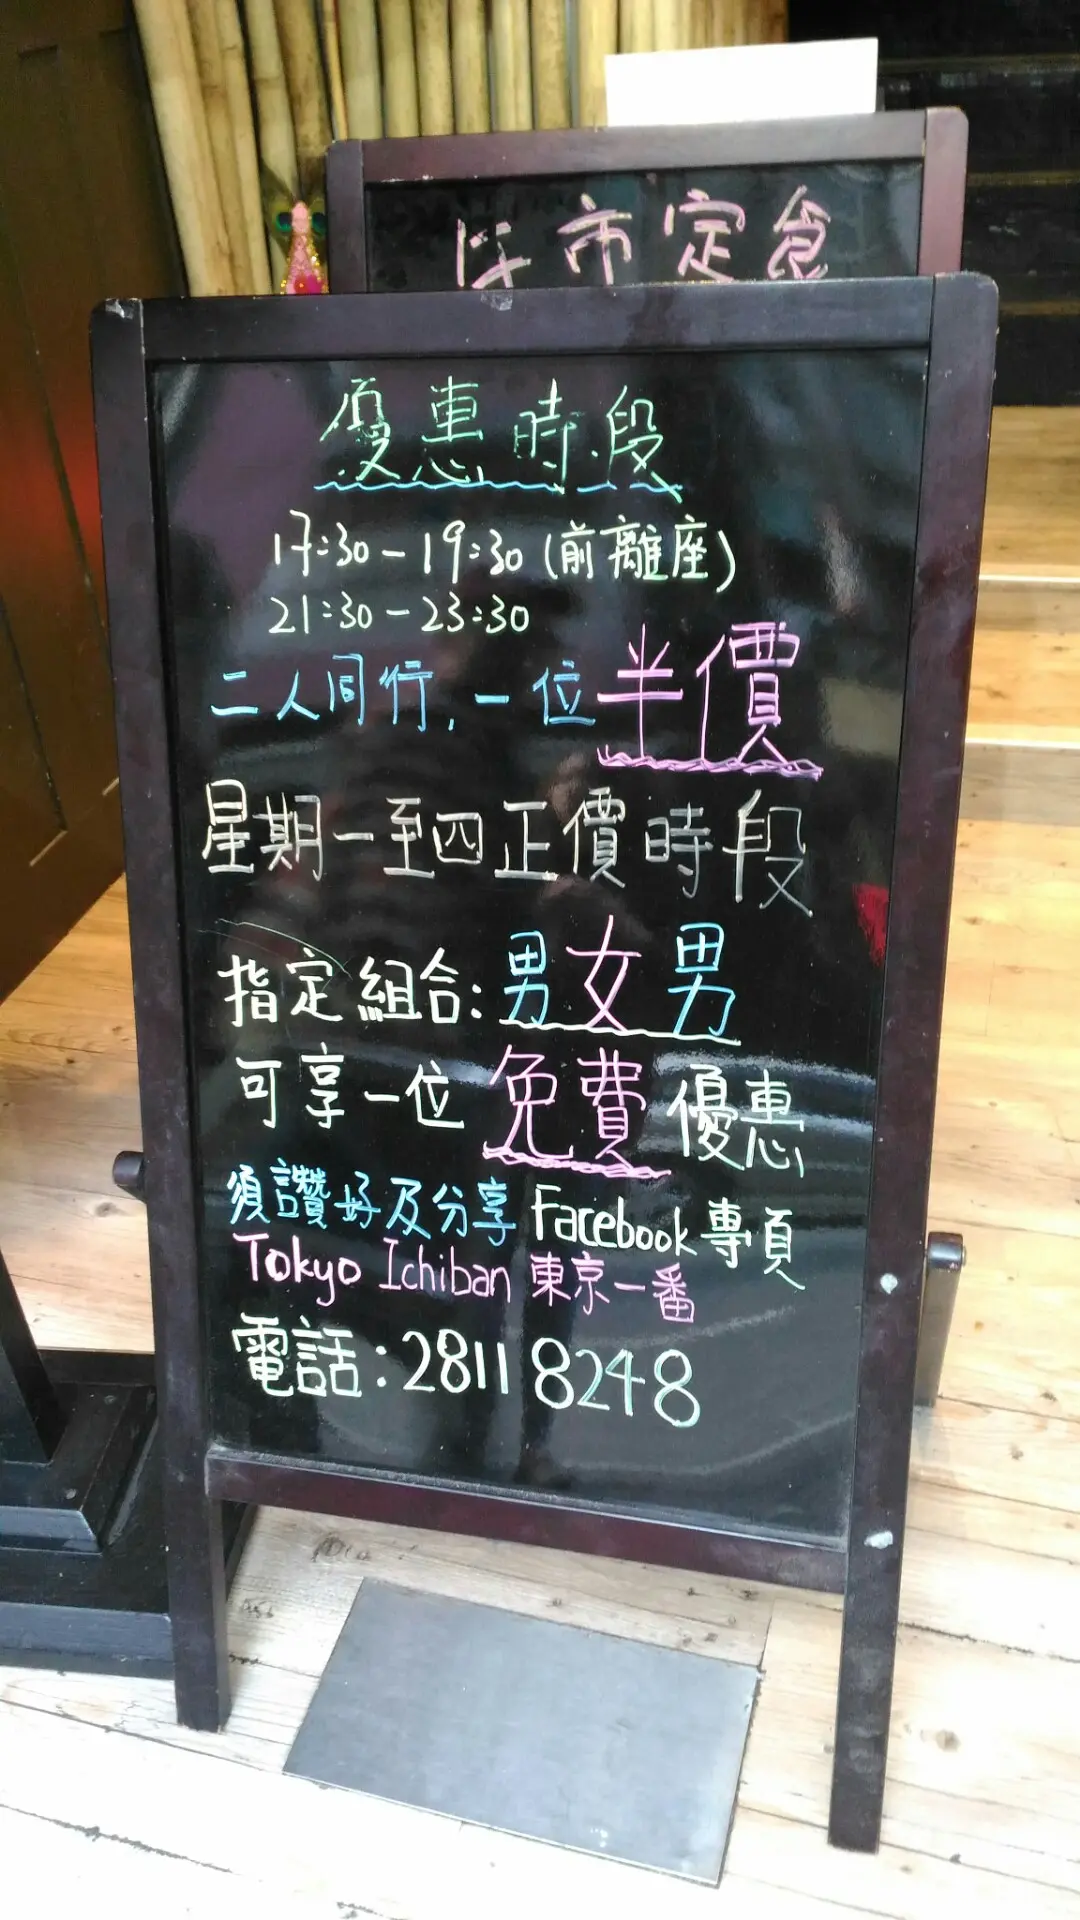 市定食
優惠時段
17:30-19:30(前離座)
21:30-23:30
二人同行,一位半價
星期一至四正價時段
指定組合:男女男
可享一位免費優惠
須讚好及分享Facebook專頁
Tokyo Ichiban 東京一番
電話:2811 8248